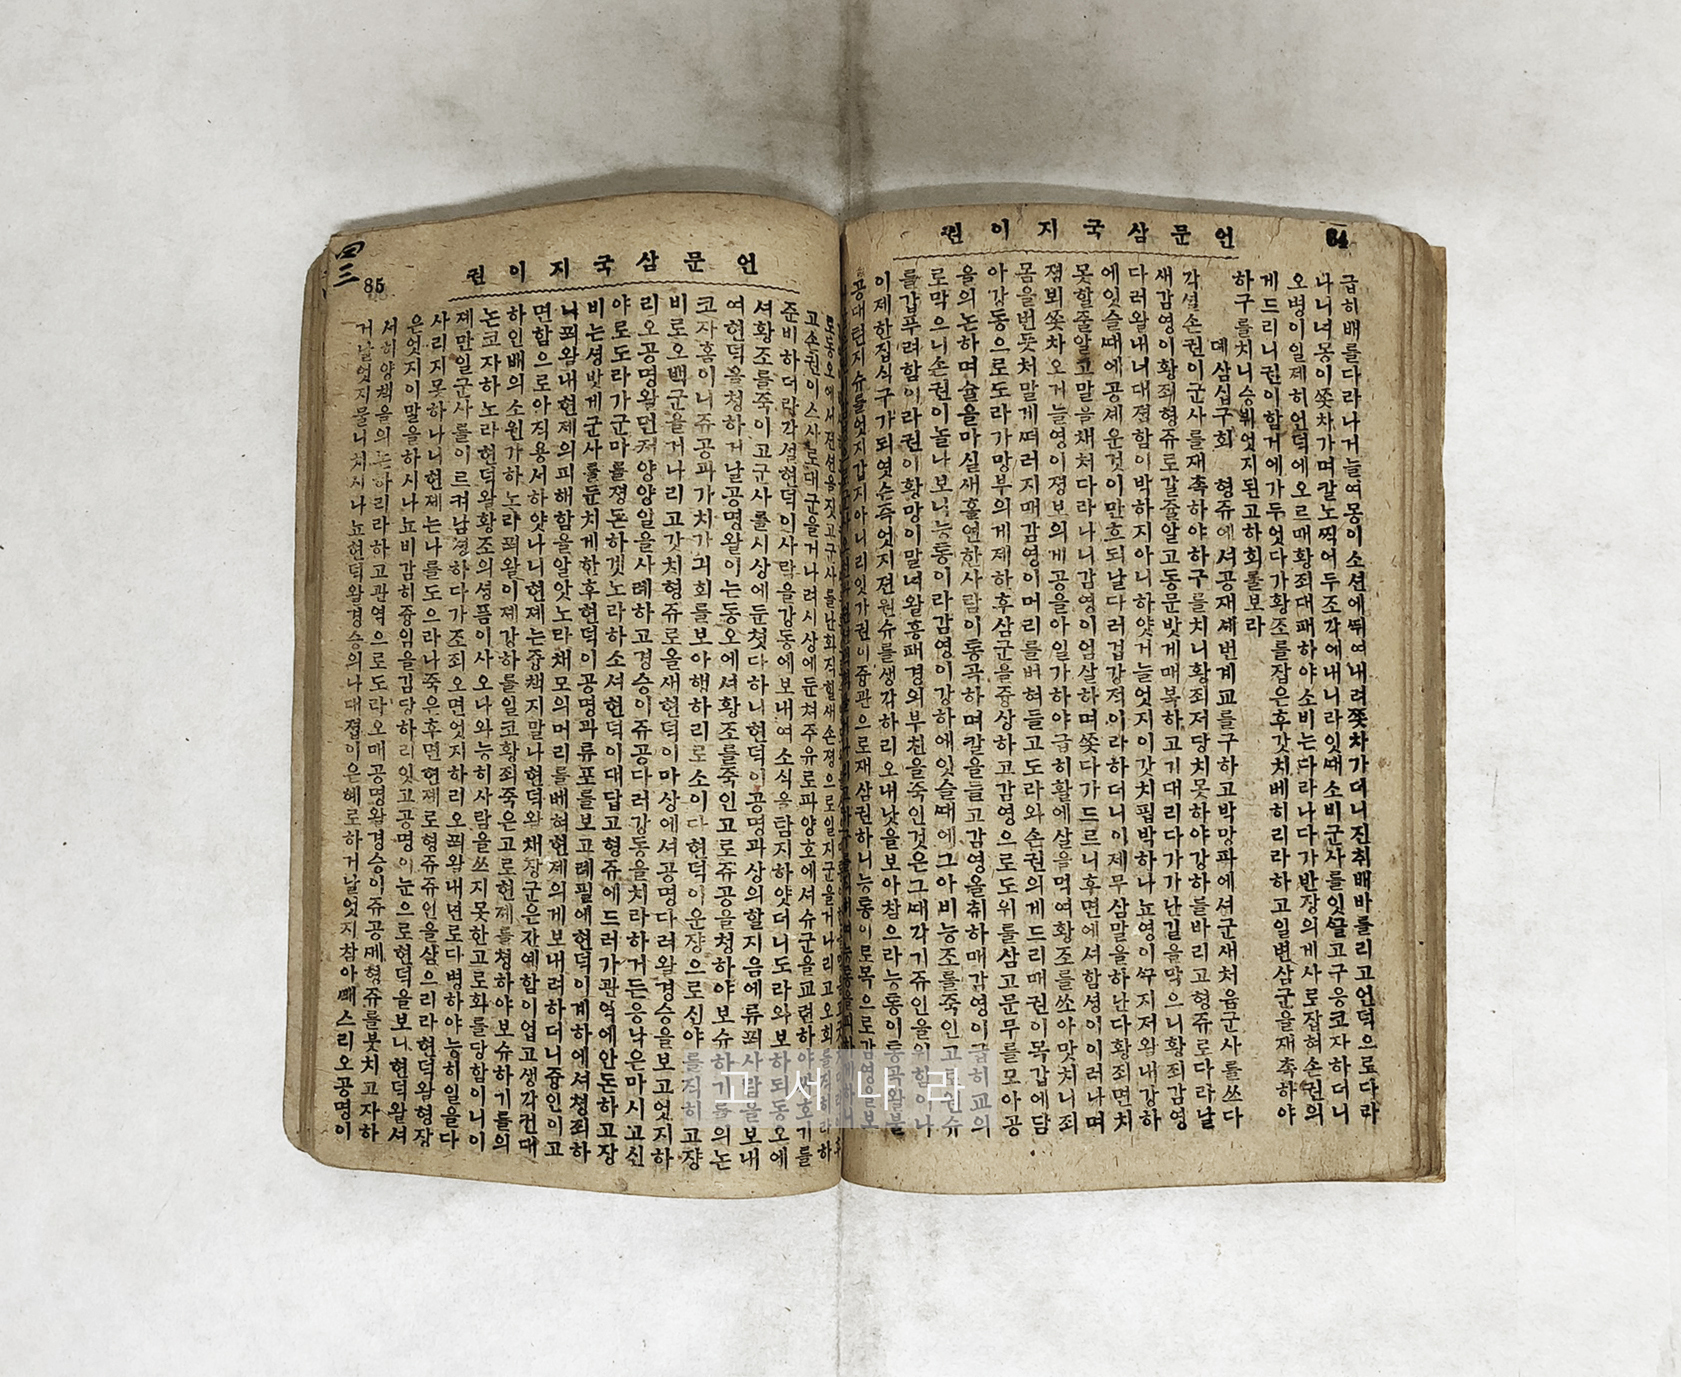 84
언문삼국지이권
급히배를다라나거늘여몽이소션에뛰여내려쫓차가더니진취배바를리고언덕으로다라
나니녀몽이쫓차가며칼노찍어두조각에내니라잇때소비군사를잇끌고구응코자하더니
오병이일제히언덕에오르매황죄대패하야소비는다라나다가반장의게사로잡혀손권의
게드리니권이함거에가두엇다가황조를잡은후갓치베히리라하고일변삼군을재촉하야
하구를치니승뷔엇지된고하회를보라
뎨삼십구회 형쥬에셔공재셰번계교를구하고박망파에셔군새처음군사를쓰다
각셜손권이군사를재촉하야하구를치니황죄저당치못하야강하를바리고형쥬로다라날
새감영이황죄형쥬로갈줄알고동문밧게매복하고기대리다가가난길을막으니황죄감영
다려왈내너대졉함이박하지아니하얏거늘엇지이갓치핍박하나뇨영이꾸지저왈내강하
에잇슬때에공셰운것이만흐되날다려겁강적이라하더니이제무삼말을하난다황죄면치
못할줄알고말을채처다라나니감영이엄살하며쫓다가드르니후면에셔함셩이이러나며
졍뵈쫓차오거늘영이졍보의게공을아일가하야급히활에살을먹여황조를쏘아맛치니죄
몸을번듯처말게떠러지매감영이머리를버혀들고도라와손권의게드리매권이목갑에담
아강동으로도라가망부의게제하한후삼군을즁상하고감영으로도위를삼고문무를모아공
을의논하며술을마실새홀연한사람이통곡하며칼을들고감영을취하매감영이급히교의
로막으니손권이놀나보니능통이라감영이강하에잇슬때에그아비능조를죽인고로원슈
를갑푸려함이라권이황망이말녀왈흥패경의부친을죽인것은그때각기쥬인을위함이나
이제한집식구가되엿슨즉엇지젼원슈를생각하리오내낫을보아참으라능통이통곡왈불
85
언문삼국지이권
고손권이스사로대군을거나려시상에둔쳐주유로파양호에셔슈군을교련하
준비하더라각셜현덕이사람을강동에보내여소식을탐지하얏더니도라와보하되동오에
셔황조를죽이고군사를시상에둔첫다하니현덕이공명과상의할지음에류푀사람을보내
여현덕을청하거날공명왈이는동오에셔황조를죽인고로쥬공을청하야보슈하기를의논
코자홈이니쥬공과가치가긔회를보아행하리로소이다현덕이운쟝으로신야를직히고쟝
비로오백군을거나리고갓치형쥬로올새현덕이마상에셔공명다려왈경승을보고엇지하
리오공명왈먼저양양일을사례하고경승이쥬공다려강동을치라하거든응낙은마시고신
야로도라가군마를졍돈하겟노라하소셔현덕이대답고형쥬에드러가관역에안돈하고장
비는셩밧게군사를둔치게한후현덕이공명과류표를보고례필에현덕이계하에셔쳥죄하
니푀왈내현제의피해함을알앗노라채모의머리를베혀현제의게보내려하더니즁인이고
면함으로아직용서하얏나니현졔는즁책지말나현덕왈채쟝군은간예함이업고생각건대
하인배의소원가하노라푀왈이제강하를일코황죄죽은고로현제를쳥하야보슈하기를의
논코자하노라현덕왈황조의셩픔이사오나와능히사람을쓰지못한고로화를당함이니이
제만일군사를이르켜남졍하다가조죄오면엇지하리오푀왈내년로다병하야능히일을다
사리지못하나니현제는나를도으라나죽은후면현제로형쥬쥬인을삼으리라현덕왈형장
은엇지이말을하시나뇨비감히즁임을감당하리잇고공명이눈으로현덕을보니현덕왈셔
서히양책을의논하리라하고관역으로도라오매공명왈경승이쥬공께형쥬를붓치고자하
거날엇지물니치시나뇨현덕왈경승의나대졉이은혜로하거날엇지참아빼스리오공명이
四三
고서나라